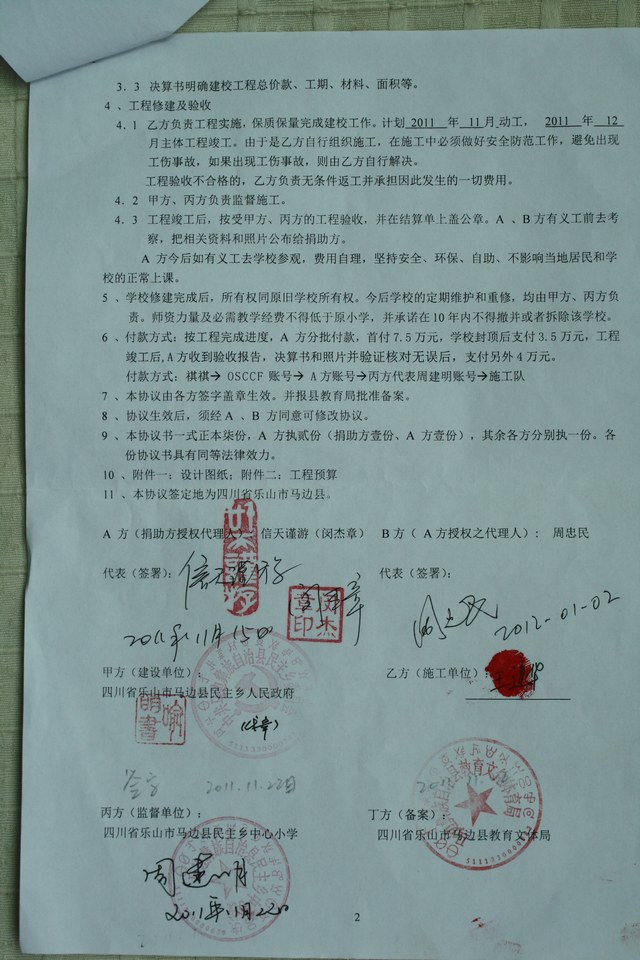 3．3 决算书明确建校工程总价款、工期、材料、面积等。
4 、工程修建及验收
4．1 乙方负责工程实施，保质保量完成建校工作。计划 2011 年 11 月动工， 2011 年 12
月主体工程竣工。由于是乙方自行组织施工，在施工中必须做好安全防范工作，避免出现
工伤事故，如果出现工伤事故，则由乙方自行解决。
工程验收不合格的，乙方负责无条件返工并承担因此发生的一切费用。
4．2 甲方、丙方负责监督施工。
4．3 工程竣工后，按受甲方、丙方的工程验收，并在结算单上盖公章。A 、B 方有义工前去考
察，把相关资料和照片公布给捐助方。
A 方今后如有义工去学校参观，费用自理，坚持安全、环保、自助、不影响当地居民和学
校的正常上课。
5 、学校修建完成后，所有权同原旧学校所有权。今后学校的定期维护和重修，均由甲方、丙方负
责。师资力量及必需教学经费不得低于原小学，并承诺在 10 年内不得撤并或者拆除该学校。
6 、付款方式：按工程完成进度，A 方分批付款，首付 7.5 万元，学校封顶后支付 3.5 万元，工程
竣工后,A 方收到验收报告，决算书和照片并验证核对无误后，支付另外 4 万元。
付款方式：祺祺→ OSCCF 账号→ A 方账号→丙方代表周建明账号→施工队
7 、本协议由各方签字盖章生效。并报县教育局批准备案。
8 、协议生效后，须经 A 、B 方同意可修改协议。
9 、本协议书一式正本柒份，A 方执贰份（捐助方壹份、A 方壹份），其余各方分别执一份。各
份协议书具有同等法律效力。
10 、附件一：设计图纸；附件二：工程预算
11 、本协议签定地为四川省乐山市马边县。
A 方（捐助方授权代理人）：信天谨游（闵杰章） B 方（ A 方授权之代理人）： 周忠民
代表（签署）： 信天谨游 闵杰章 代表（签署）：
闵杰章印
2011年11月15日 2012-01-02
甲方（建设单位）： 乙方（施工单位）：
四川省乐山市马边县民主乡人民政府
2011.11.22日
丙方（监督单位）： 丁方（备案）：
四川省乐山市马边县民主乡中心小学 四川省乐山市马边县教育文体局
周建明
2011年11月22日
2